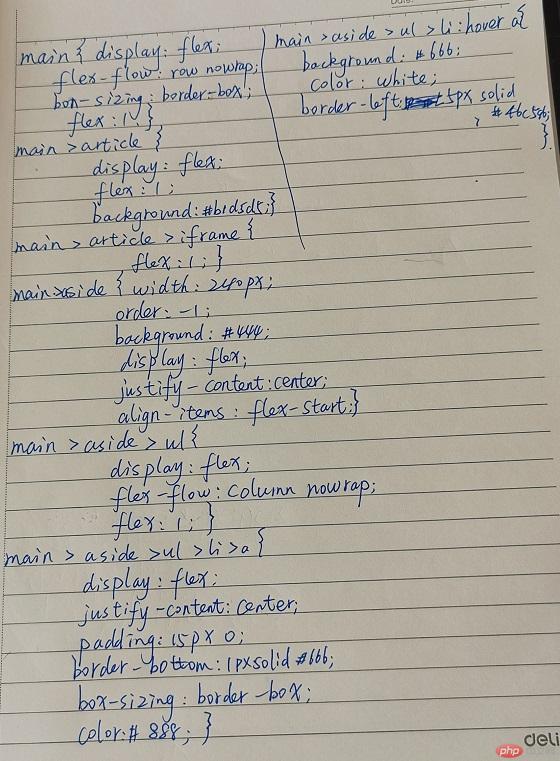 main{ display: flex;
flex-flow: row nowrap;
box-sizing: border-box;
flex: 1; }
main > article {
display: flex;
flex: 1;
background: #b1d5d5;}
main > article > iframe {
flex: 1; }
main>aside { width: 240px;
order: -1;
background: #444;
display: flex;
justify-content: center;
align-items: flex-start;}
main > aside > ul{
display: flex;
flex-flow: column nowrap;
flex: 1; }
main > aside >ul > li >a {
display: flex;
justify-content: center;
padding: 15px 0;
border-bottom: 1px solid #666;
box-sizing: border-box;
color: # 888; }
main >aside > ul > li:hover a{
background: #666;
color: white;
border-left: 5px solid
}.
deli
php